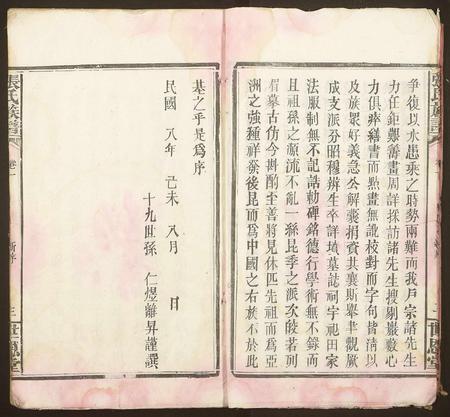 爭復以水患乘之時勢兩難而我戶宗諸先生
力任鉅艱善畫周詳採訪諸先生搜剔巖藪心
力俱瘁繕書而點畫無訛校對而字句皆清以
及族眾好義急公解囊捐資共襄斯舉聿觀厥
成支派分昭穆辨生卒詳墳墓誌祠宇祀田家
法服制無不記誥勅碑銘德行學術無不錄而
且祖孫之源流不亂一絲昆季之派次皎若列
眉摹古仿今斟酌至善將見休匹先祖而為亞
洲之強種祥發後昆而為中國之右族不於此
基之乎是為序
民國 八年 己未 八月 日
十九世孫 仁煜離昇謹撰
張氏族譜
卷一
新序
三
世恩堂